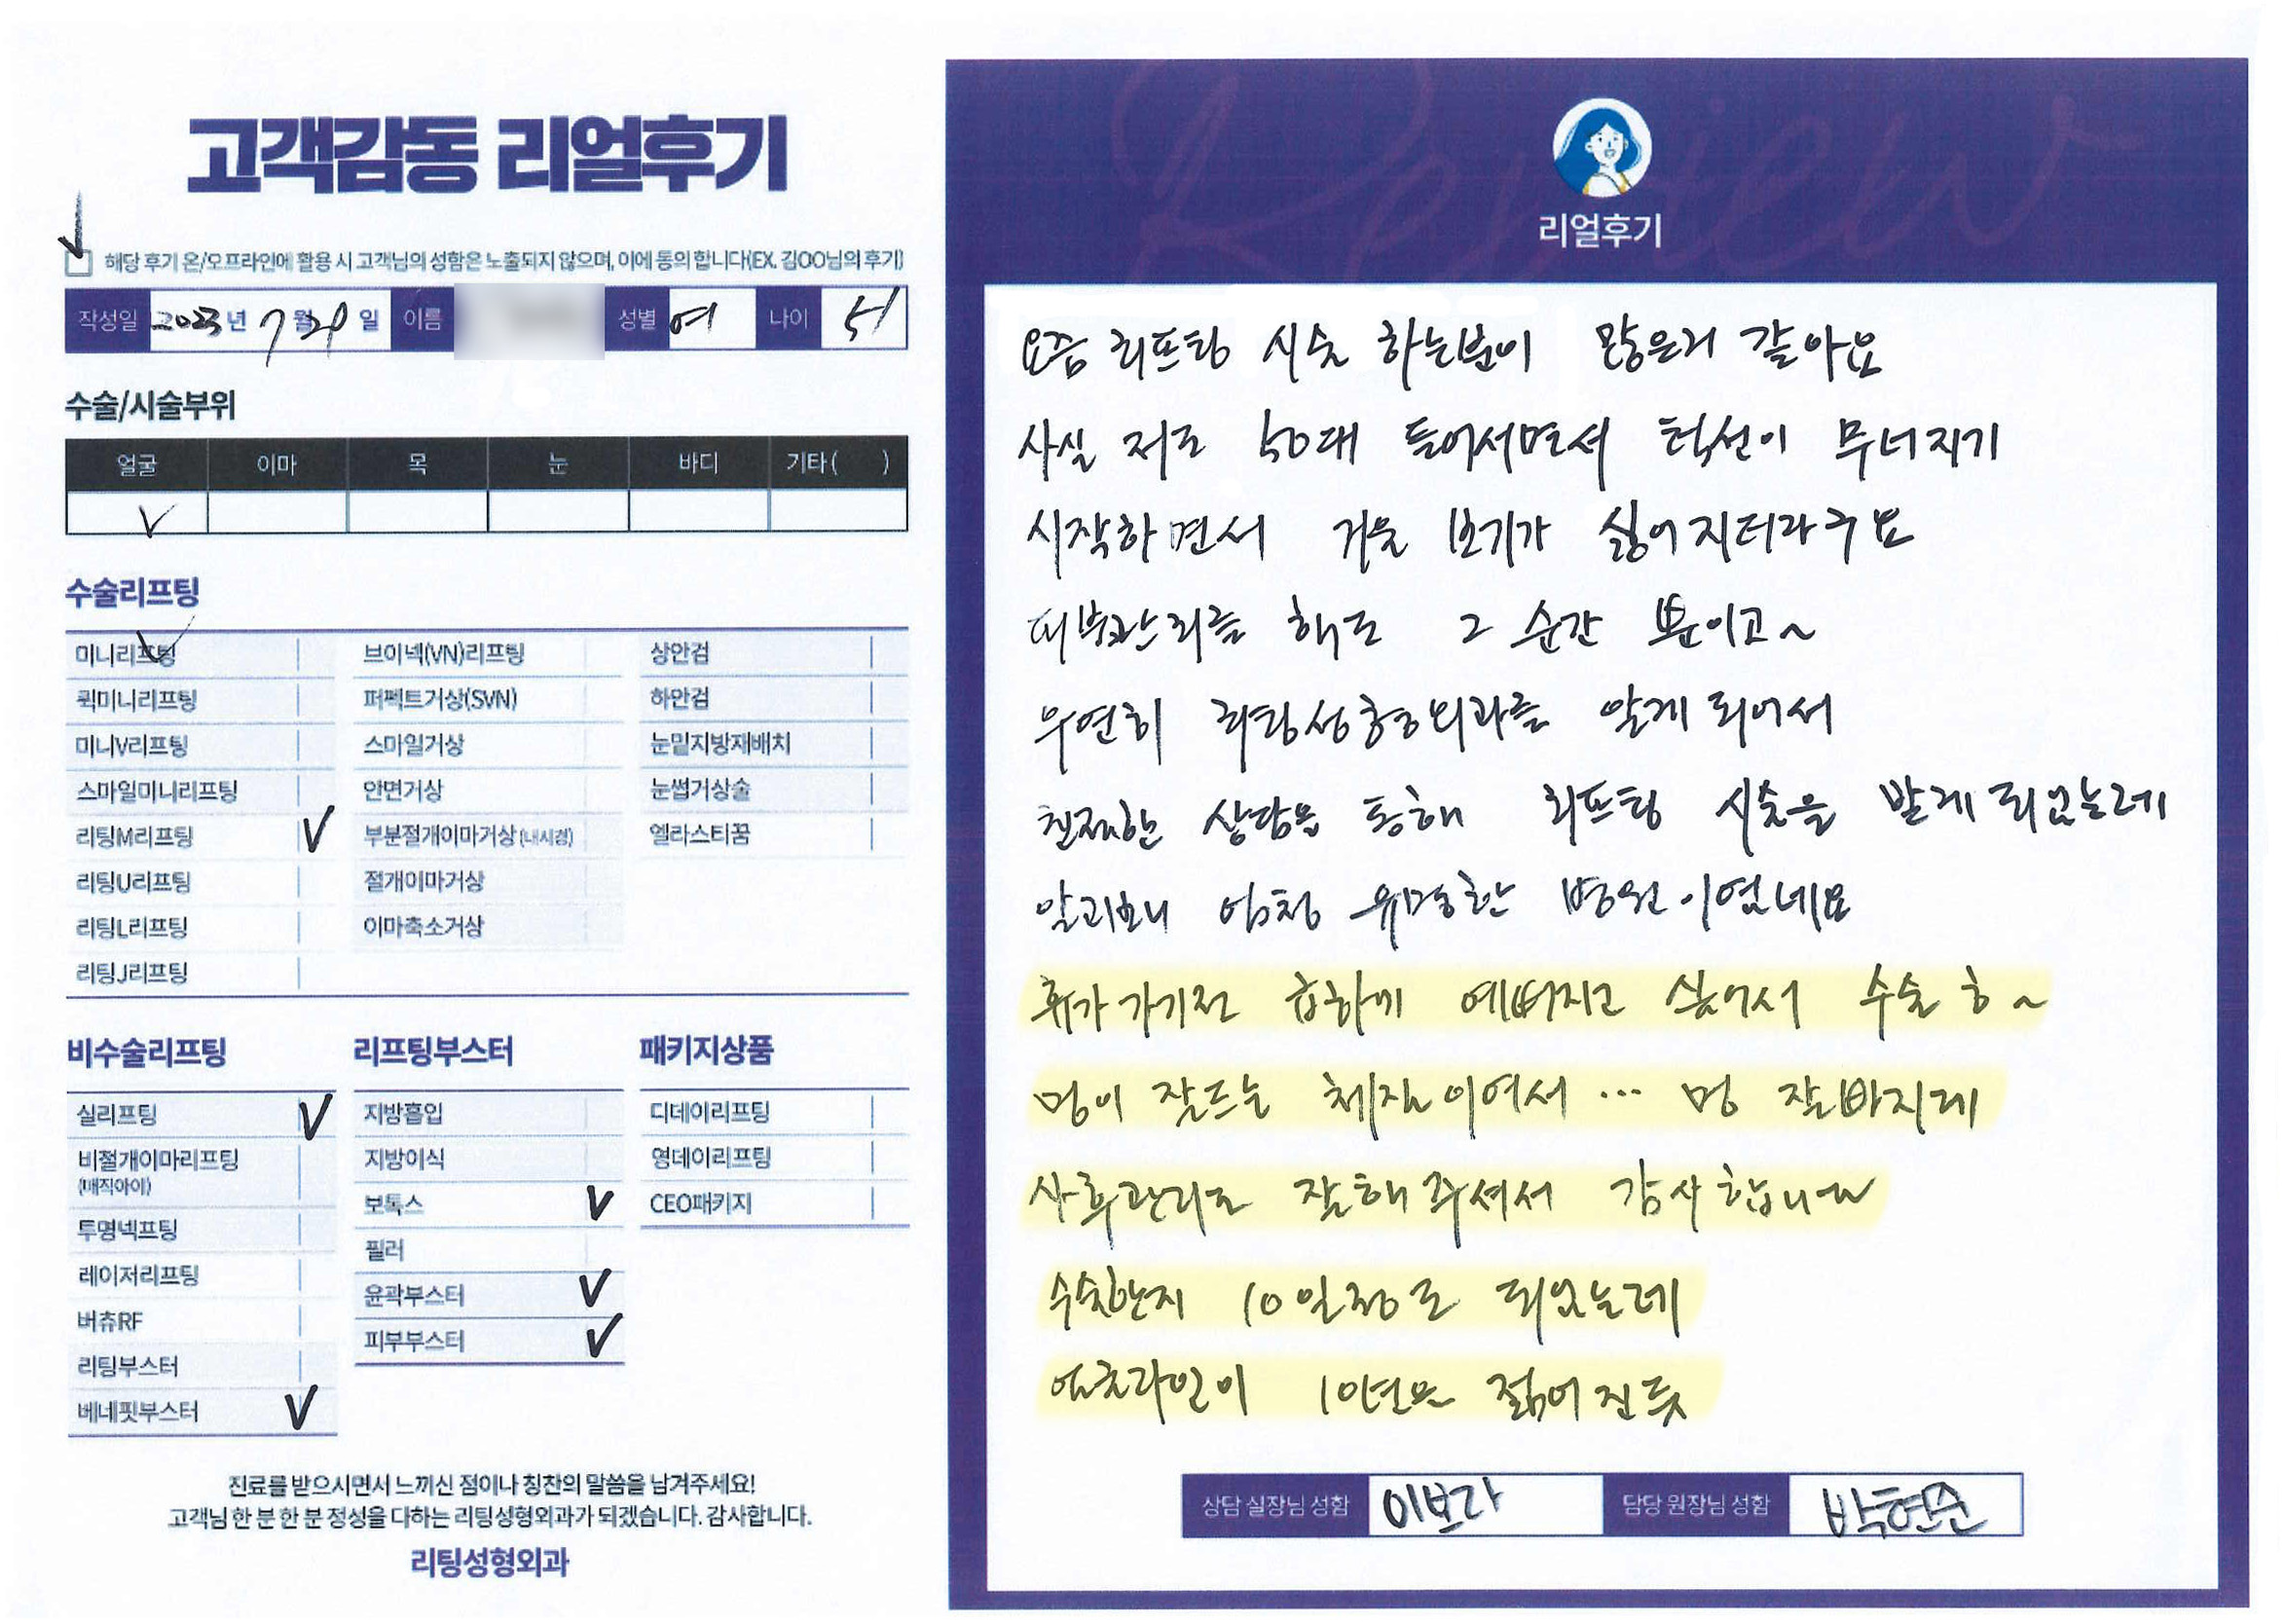 고객감동 리얼후기
해당 후기 온/오프라인에 활용 시 고객님의 성함은 노출되지 않으며, 이에 동의 합니다(EX. 김OO님의 후기)
작성일 2023년 7월 20일 이름 성별 여 나이 51
수술/시술부위
얼굴 이마 목 눈 바디 기타( )
수술리프팅
미니리프팅 브이넥(VN)리프팅 상안검
퀵미니리프팅 퍼펙트거상(SVN) 하안검
미니V리프팅 스마일거상 눈밑지방재배치
스마일미니리프팅 안면거상 눈썹거상술
리팅M리프팅 부분절개이마거상(내시경) 엘라스티꿈
리팅U리프팅 절개이마거상
리팅L리프팅 이마축소거상
리팅J리프팅
비수술리프팅 리프팅부스터 패키지상품
실리프팅 지방흡입 디데이리프팅
비절개이마리프팅 지방이식 영데이리프팅
(매직아이)
보톡스 CEO패키지
투명넥프팅 필러
레이저리프팅 윤곽부스터
버츄RF 피부부스터
리팅부스터
베네핏부스터
진료를 받으시면서 느끼신 점이나 칭찬의 말씀을 남겨주세요!
고객님 한 분 한 분 정성을 다하는 리팅성형외과가 되겠습니다. 감사합니다.
리팅성형외과
Review
리얼후기
요즘 리프팅 시술 하는분이 많은거 같아요
사실 저도 50대 들어서면서 턱선이 무너지기
시작하면서 거울 보기가 싫어지더라구요
피부관리를 해도 그 순간 뿐이고~
우연히 리팅성형외과를 알게 되어서
친절한 상담을 통해 리프팅 시술을 받게 되었는데
알고보니 엄청 유명한 병원이였네요
휴가 가기전 급하게 예뻐지고 싶어서 수술 후~
멍이 잘드는 체질이여서... 멍 잘빠지게
사후관리도 잘해 주셔서 감사합니다
수술한지 10일정도 되었는데
옆라인이 10년은 젊어진듯
상담 실장님 성함 이보라 담당 원장님 성함 박현순